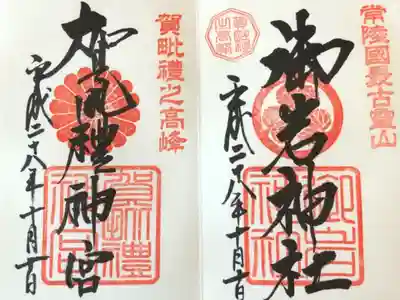 常陸國最古霊山
御岩神社
平成二十八年十月一日
賀毗禮之高峰
賀毗禮神宮
平成二十八年十月一日